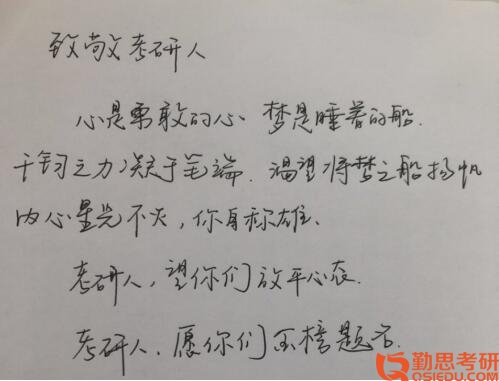 致敬考研人
心是勇敢的心. 梦是睡着的船.
千钧之力凝于笔端. 渴望将梦之船扬帆
内心星光不灭,你自称雄.
考研人,望你们放平心态.
考研人,愿你们金榜题名.
勤思考研
QSIEDU.COM